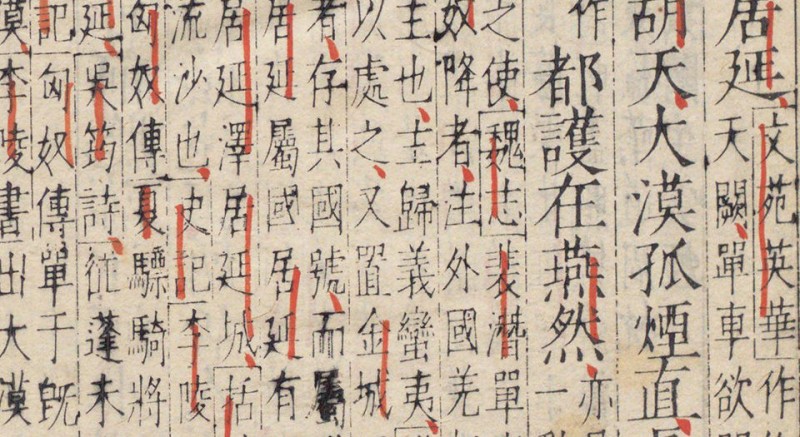 居延
文苑英華作
天闕單車欲
胡天大漠孤煙直
作
都護在燕然
亦
一
之使魏志裴潛單
奴降者注外國羌
主也主歸義蠻夷
以處之又置金城
者存其國號而屬
居延屬國居延有
居延澤居延城括
流沙也史記李陵
匈奴傳夏驃騎將
延吳筠詩從蓬未
記匈奴傳單于既
漠李陵書出大漠